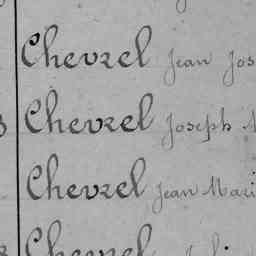 Chevrel Jean Jos
Chevrel Joseph M
Chevrel Jean Mari
Chevrel